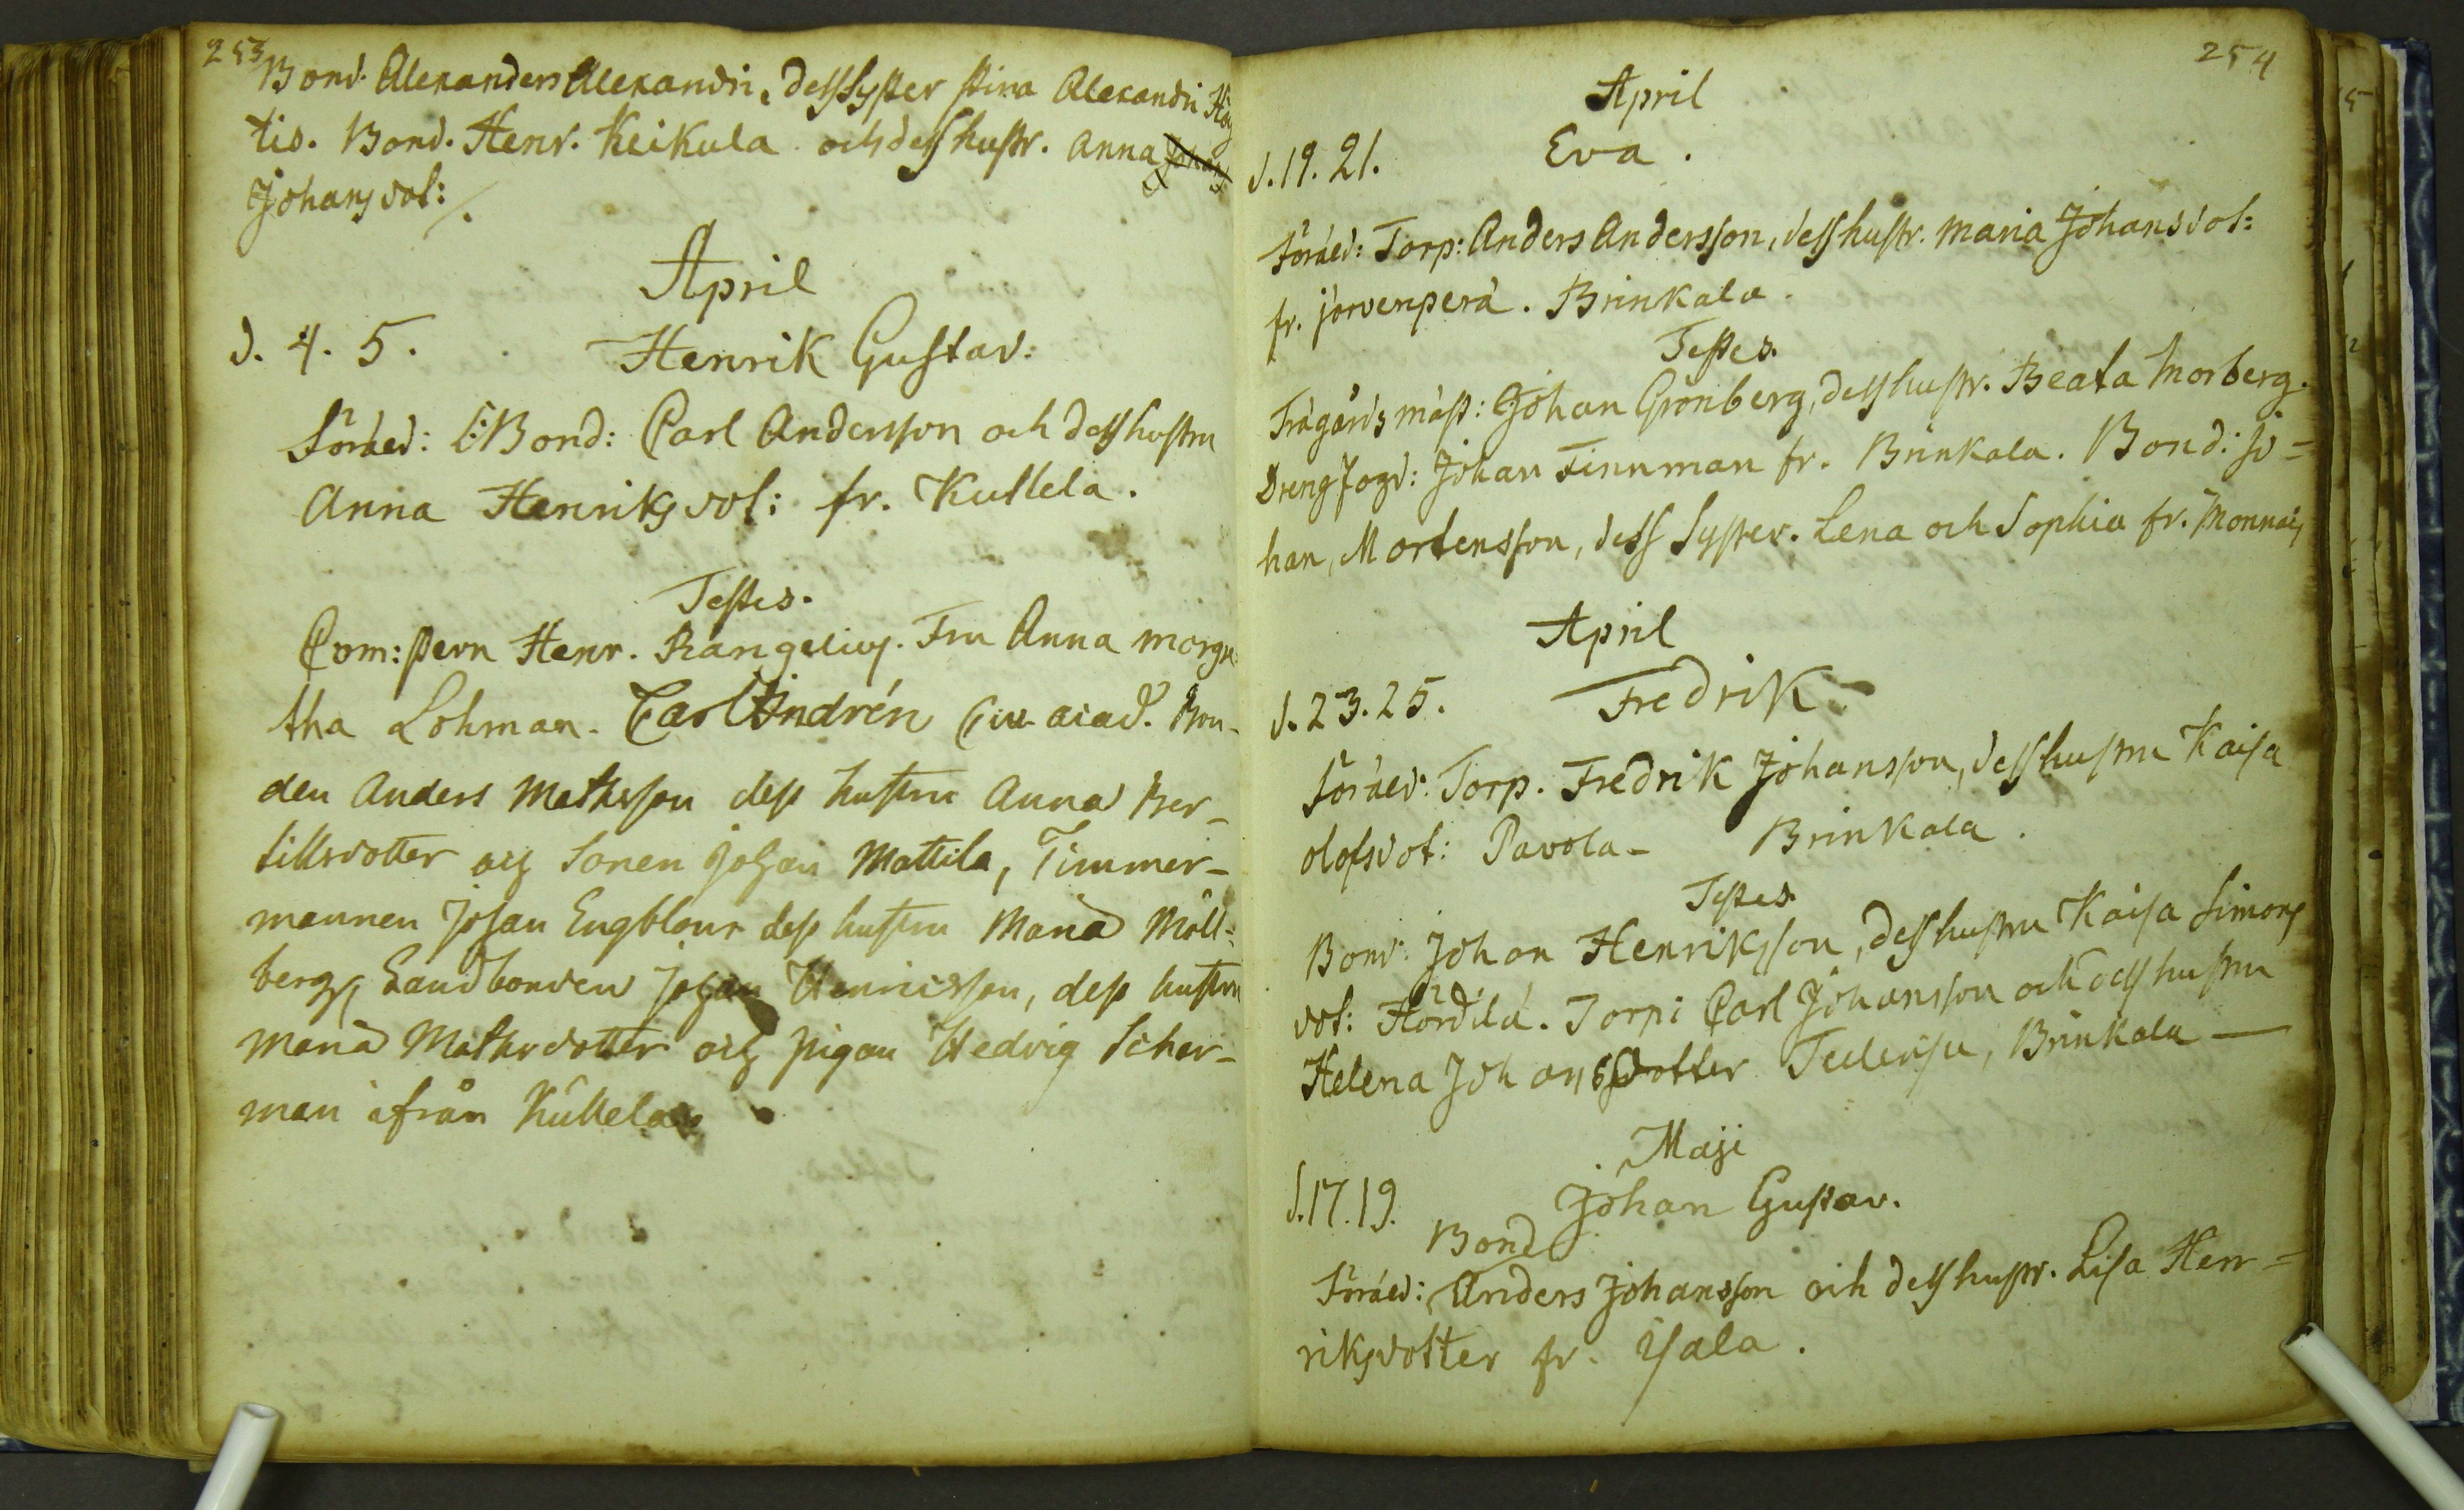 253
Bond. Alexanders Alexandri, dess Syster Stina Alexandri
tis. Bond. Henr. Keikula och dess hustr. Anna Johans
Johansdot: /.
April
d. 4. 5. Henrik Gustav:
Föräld: Bond: Carl Andersson och dess hustru
Anna Henriksdot: fr. Kullela.
Testes.
Com: Henr. Rangelius. Fru Anna Morga
tha Lohman. Carl Andrén Civ. acad. Bon-
den Anders Mathsson dess hustru Anna Ber-
tillsdotter och Sonen Johan Mattila, Timmer-
mannen Johan Engblom dess hustru Maria Möll-
berg, Landbonden Johan Henricsson, dess hustru
Maria Mathsdotter och pigan Hedvig Scher-
man ifrån Kullela
254
April
d. 19. 21. Eva.
Föräld: Torp: Anders Andersson, dess hustr. Maria Johansdot:
fr. Jervenperä. Brinkala.
Testes.
Trägårds mäst: Johan Grönberg, dess hustr. Beata Morberg.
Drengfogd: Johan Finnman fr. Brinkala. Bond: Jo=
han, Mortensson, dess Syster. Lena och Sophia fr. Monnois
April
d. 23. 25. Fredrik
Föräld: Torp. Fredrik Johansson, dess hustru Kaisa
olofsdot: Pavola - Brinkala.
Testes.
Bond: Johan Henriksson, dess hustru Kaisa Simons
dot: Hördilä. Torp: Carl Johansson och dess hustru
Helena Johansdotter Brinkala —
Maji
d. 17. 19. Johan Gustav.
Bond
Föräld: Anders Johansson och dess hustr. Lisa Hen=
riksdotter fr. Yala.